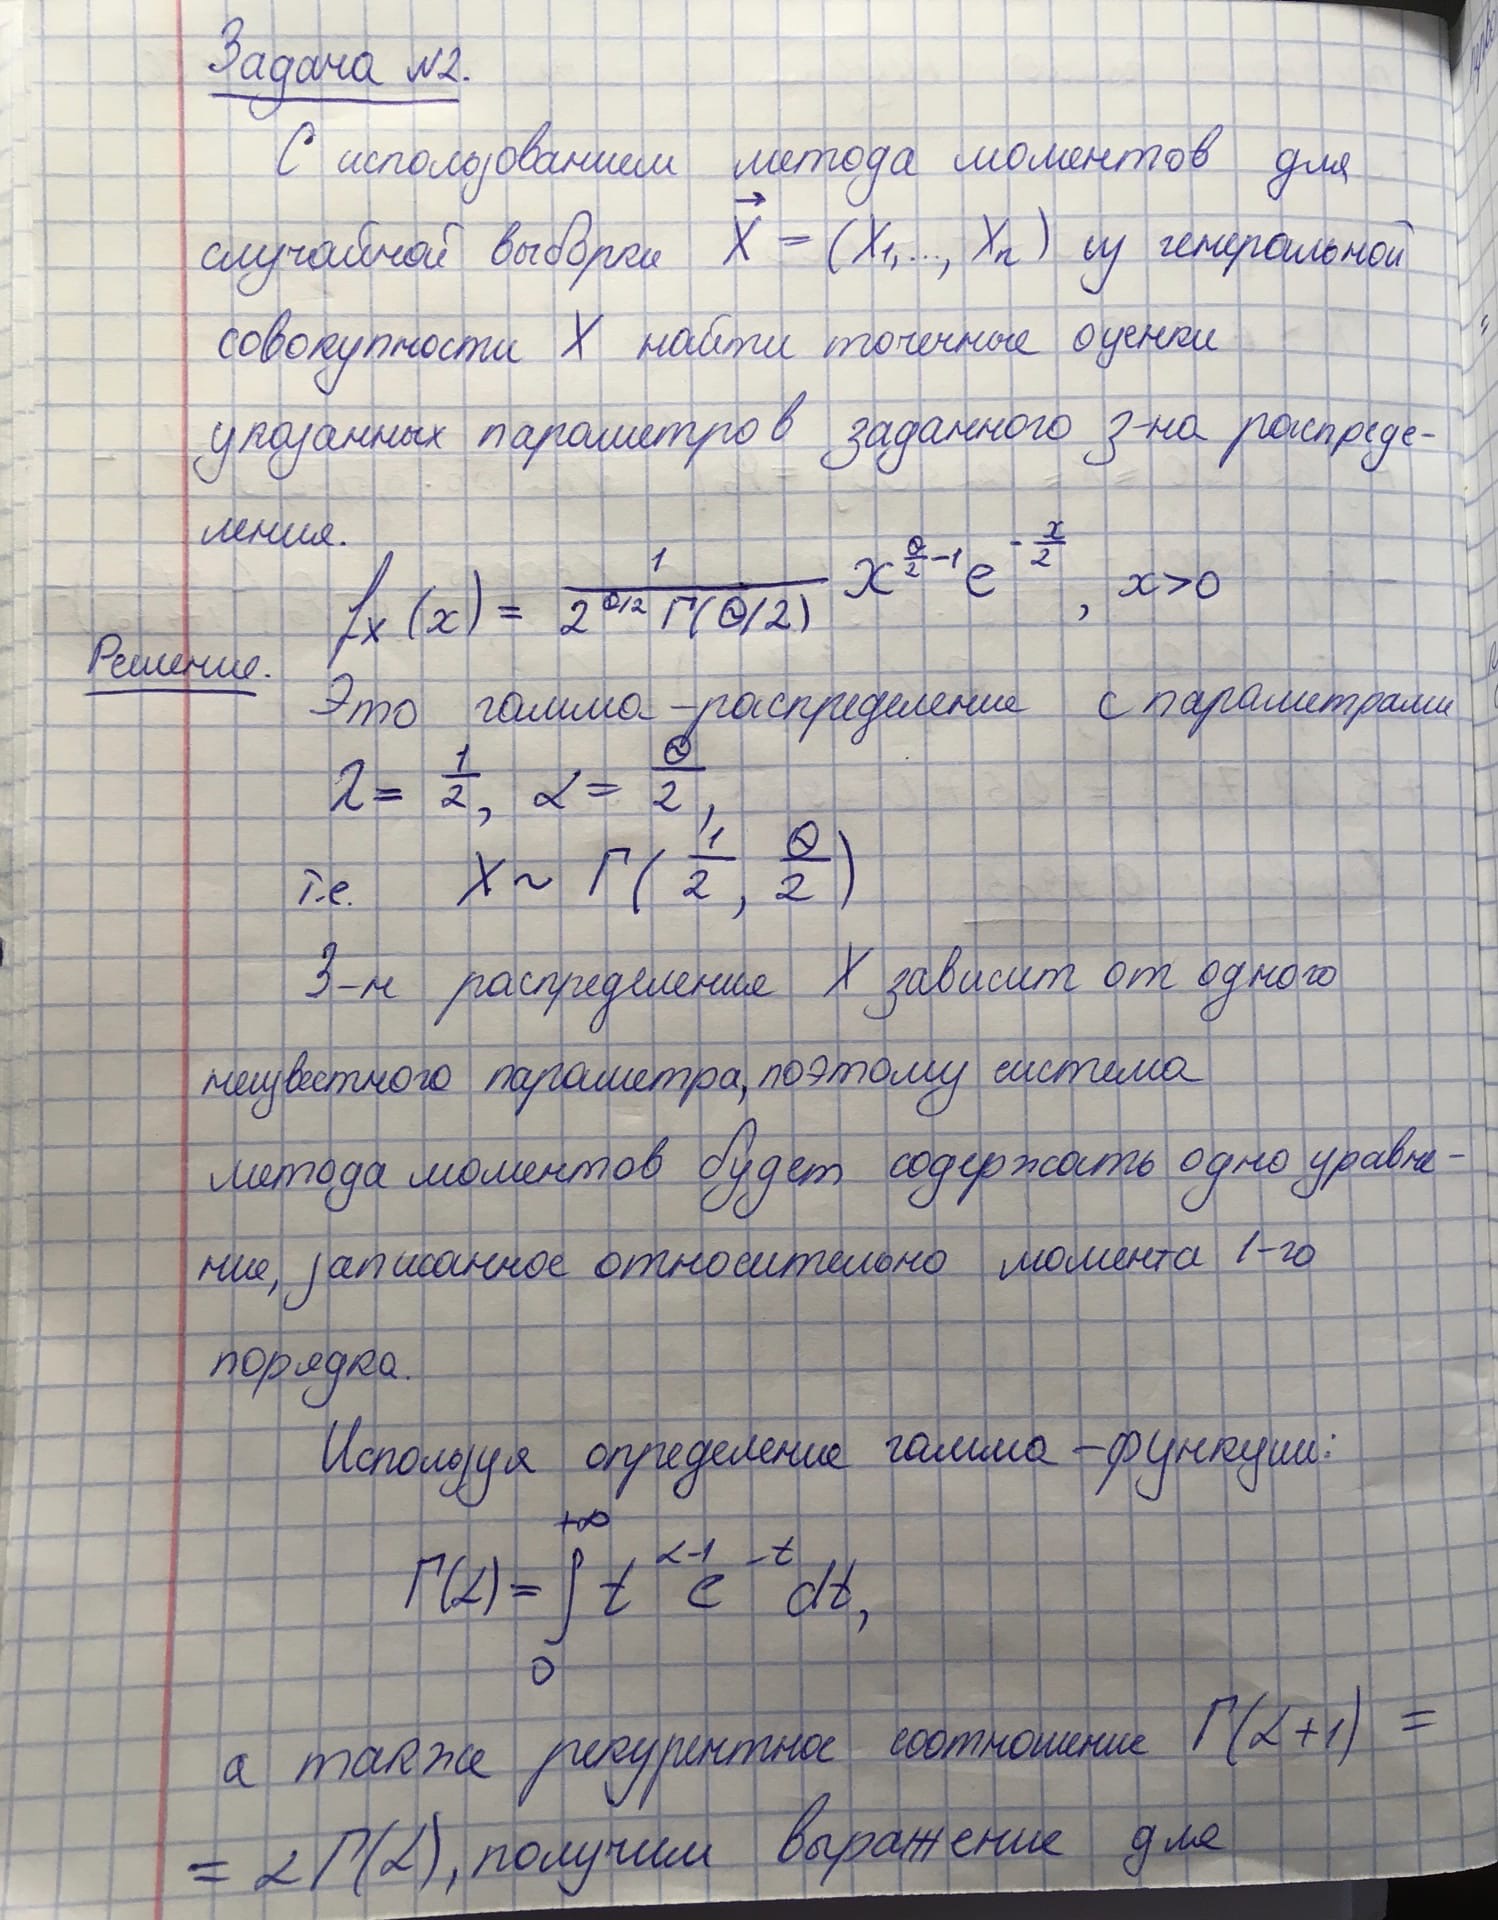 Задача №2.
С использованием метода моментов для
случайной выборки X⃗ = (X₁,..., Xₙ) из генеральной
совокупности X найти точечные оценки
указанных параметров заданного з-на распреде-
ления.
f_X(x) = 1/(2^(θ/2) Γ(θ/2)) x^(θ/2 - 1) e^(-x/2), x>0
Решение.
Это гамма-распределение с параметрами
λ = 1/2, α = θ/2,
т.е. X ~ Γ(1/2, θ/2)
З-н распределения X зависит от одного
неизвестного параметра, поэтому система
метода моментов будет содержать одно уравне-
ние, записанное относительно момента 1-го
порядка.
Используя определение гамма-функции:
Γ(α) = ∫₀^(+∞) t^(α-1) e^(-t) dt,
а также рекурентное соотношение Γ(α+1) =
= αΓ(α), получим выражение для